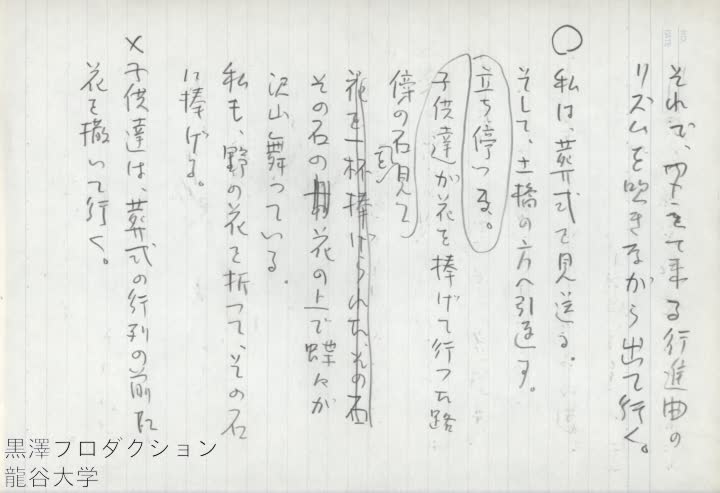 それで、やつて来る行進曲の
リズムを吹きながら出て行く。
○ 私は、葬式を見送る。
そして、土橋の方へ引返す。
立ち停つる。
子供達が花を捧げて行つた路
傍の石を見て
花を一杯捧げられた、その石
その石の花の上で蝶々が
沢山舞つている。
私も、野の花を折つて、その石
に捧げる。
×子供達は、葬式の行列の前に
花を撒いて行く。
黒澤プロダクション
龍谷大学